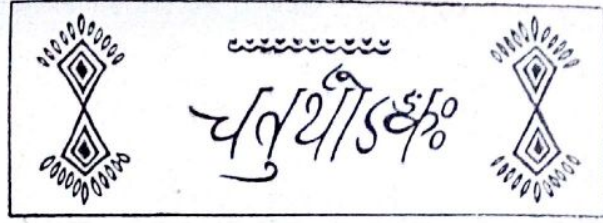 चतुर्थोऽङ्कः